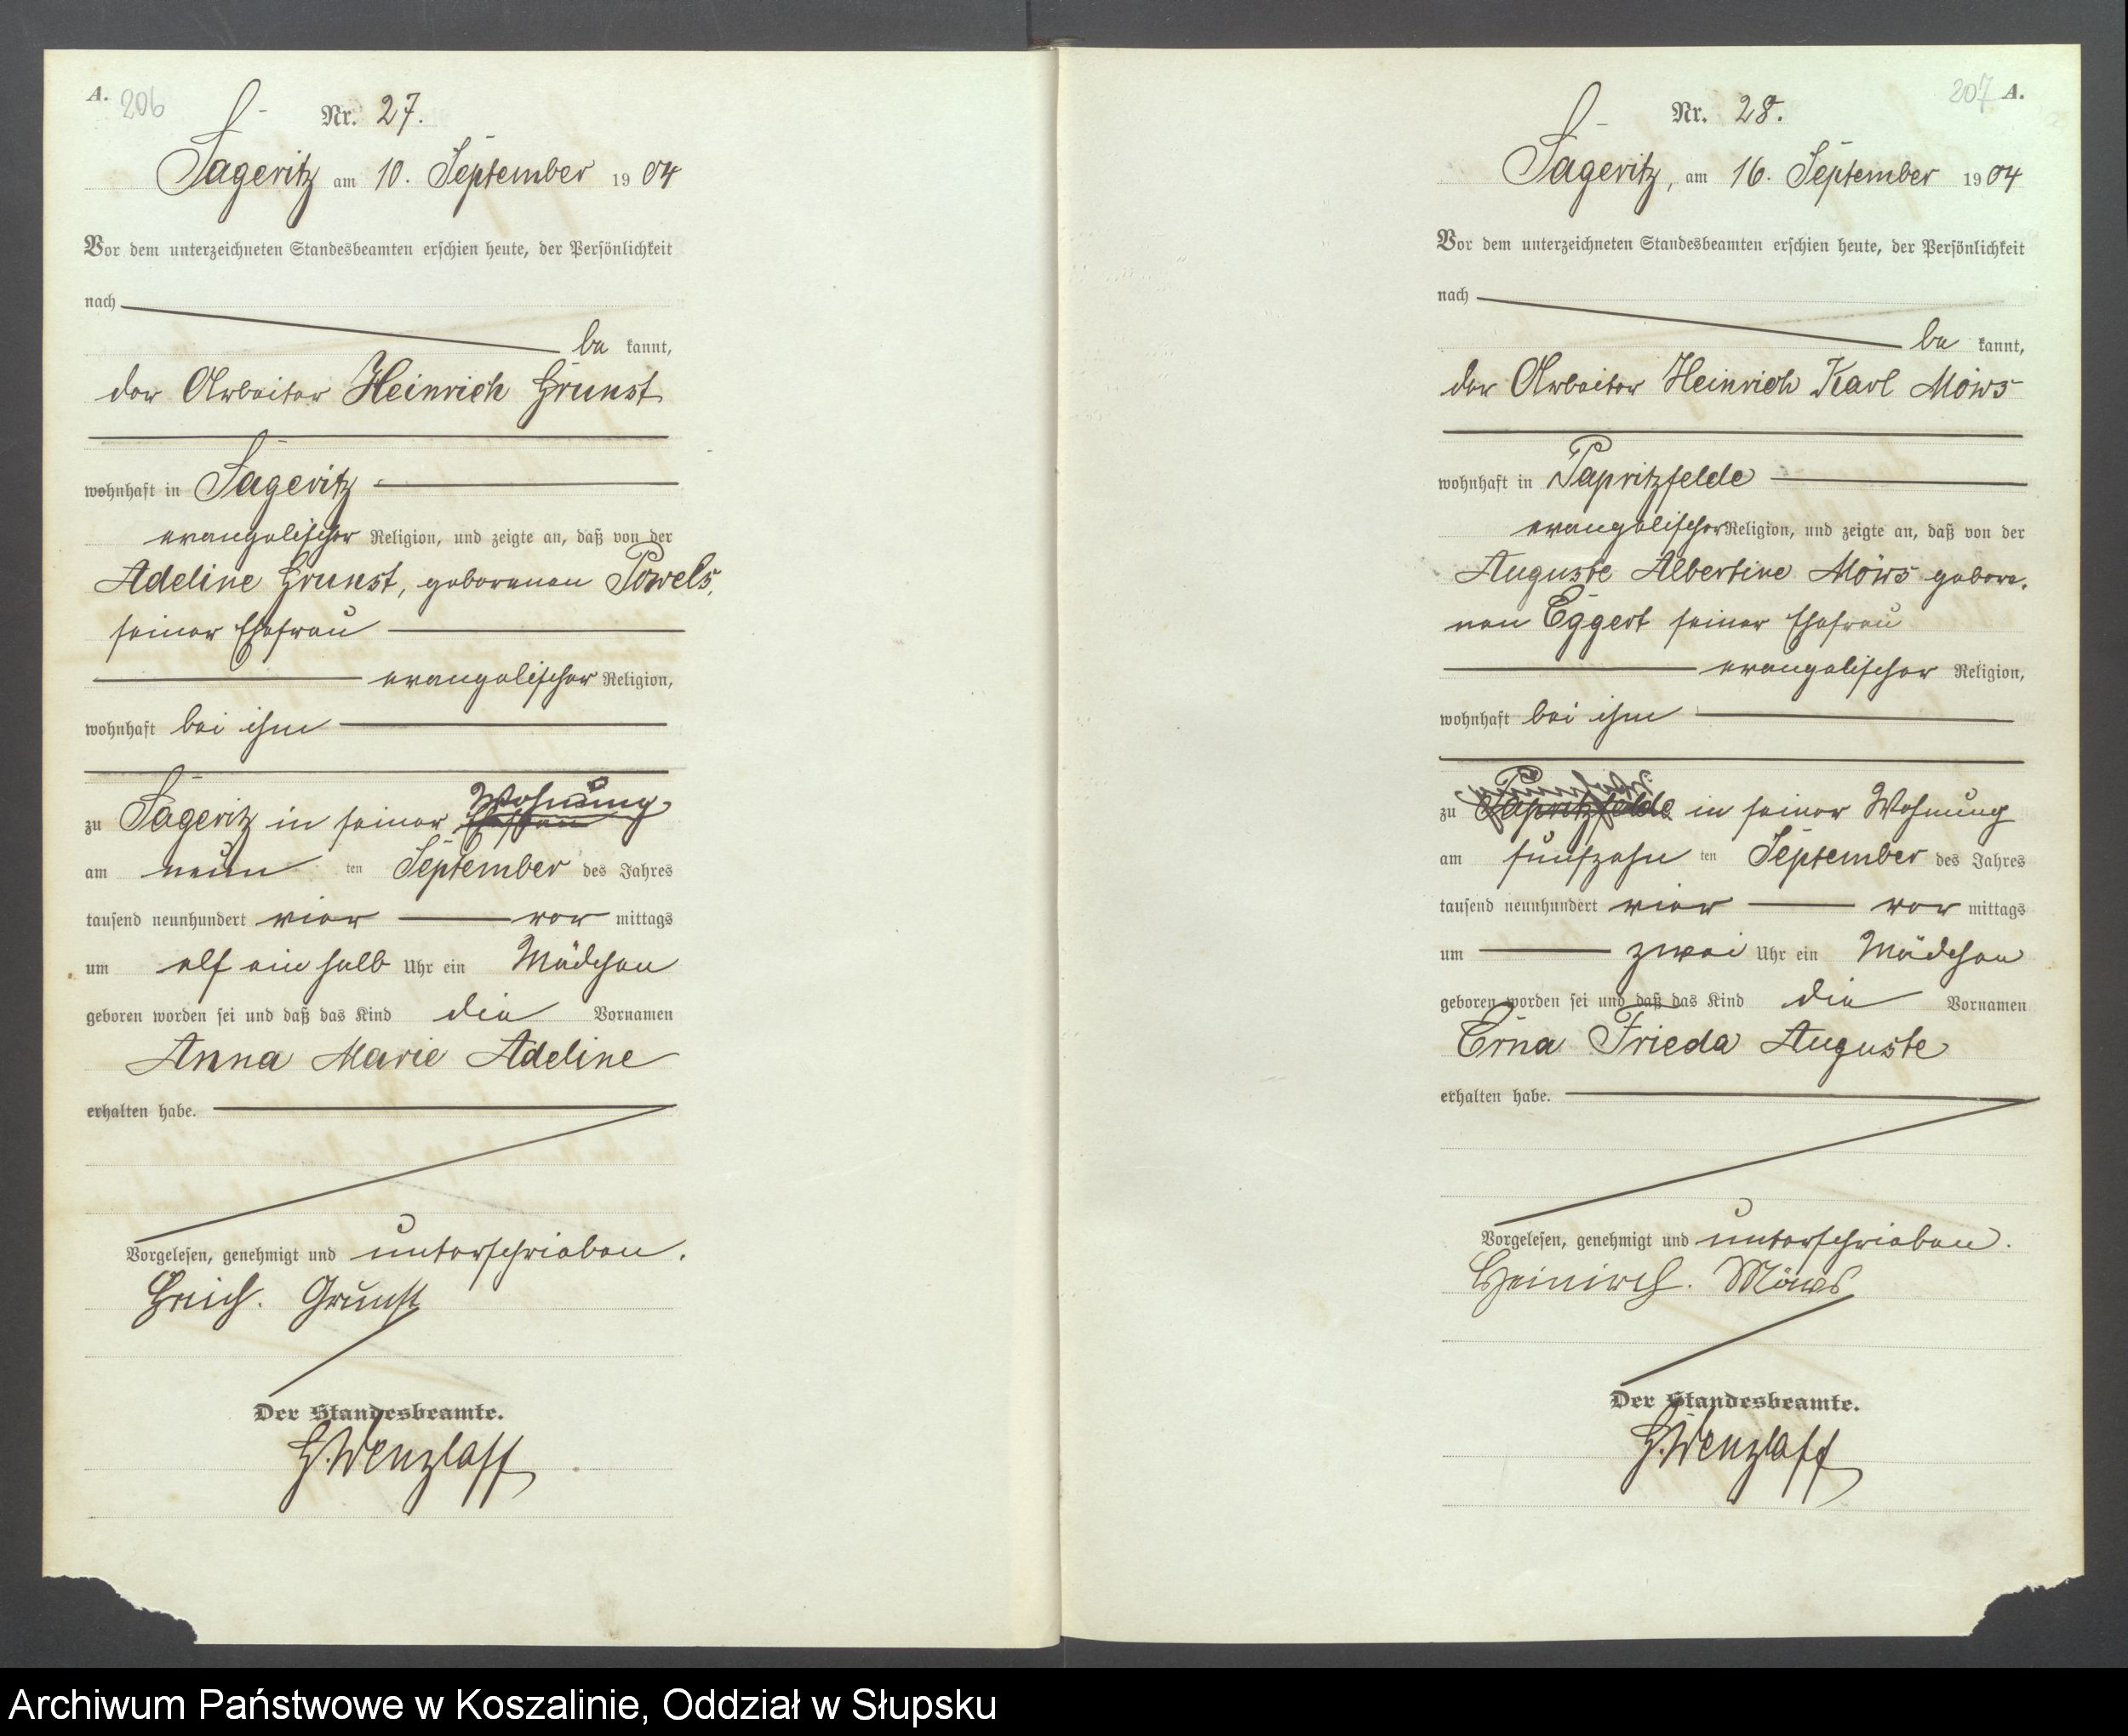 A. 206
Nr. 27.
Sageritz am 10. September 1904
Vor dem unterzeichneten Standesbeamten erschien heute, der Persönlichkeit
nach
be kannt,
der Arbeiter Heinrich Grunst
wohnhaft in Sageritz
evangelischer Religion, und zeigte an, daß von der
Adeline Grunst, geborenen Powels,
seiner Ehefrau
evangelischer Religion,
wohnhaft bei ihm
Wohnung
zu Sageritz in seiner
am neun ten September des Jahres
tausend neunhundert vier vor mittags
um elf ein halb Uhr ein Mädchen
geboren worden sei und daß das Kind die Vornamen
Anna Marie Adeline
erhalten habe.
Vorgelesen, genehmigt und unterschrieben.
Heich. Grunst
Der Standesbeamte.
H. Wenzlaff
207 A.
Nr. 28.
Sageritz, am 16. September 1904
Vor dem unterzeichneten Standesbeamten erschien heute, der Persönlichkeit
nach
be kannt,
der Arbeiter Heinrich Karl Möws
wohnhaft in Papritzfelde
evangelischer Religion, und zeigte an, daß von der
Auguste Albertine Möws gebore-
nen Eggert seiner Ehefrau
evangelischer Religion,
wohnhaft bei ihm
zu Papritzfelde in seiner Wohnung
am fünfzehn ten September des Jahres
tausend neunhundert vier vor mittags
um zwei Uhr ein Mädchen
geboren worden sei und daß das Kind die Vornamen
Erna Frieda Auguste
erhalten habe.
Vorgelesen, genehmigt und unterschrieben.
Heinirch. Möws
Der Standesbeamte.
H. Wenzlaff
Archiwum Państwowe w Koszalinie, Oddział w Słupsku